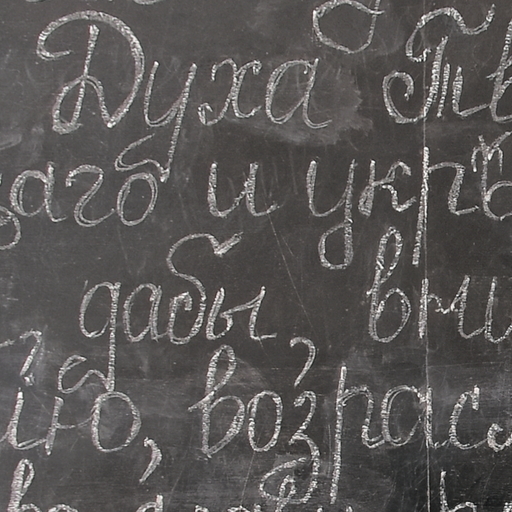 Духа Тв
аго и укрѣ
дабы, вни
ію, возрас